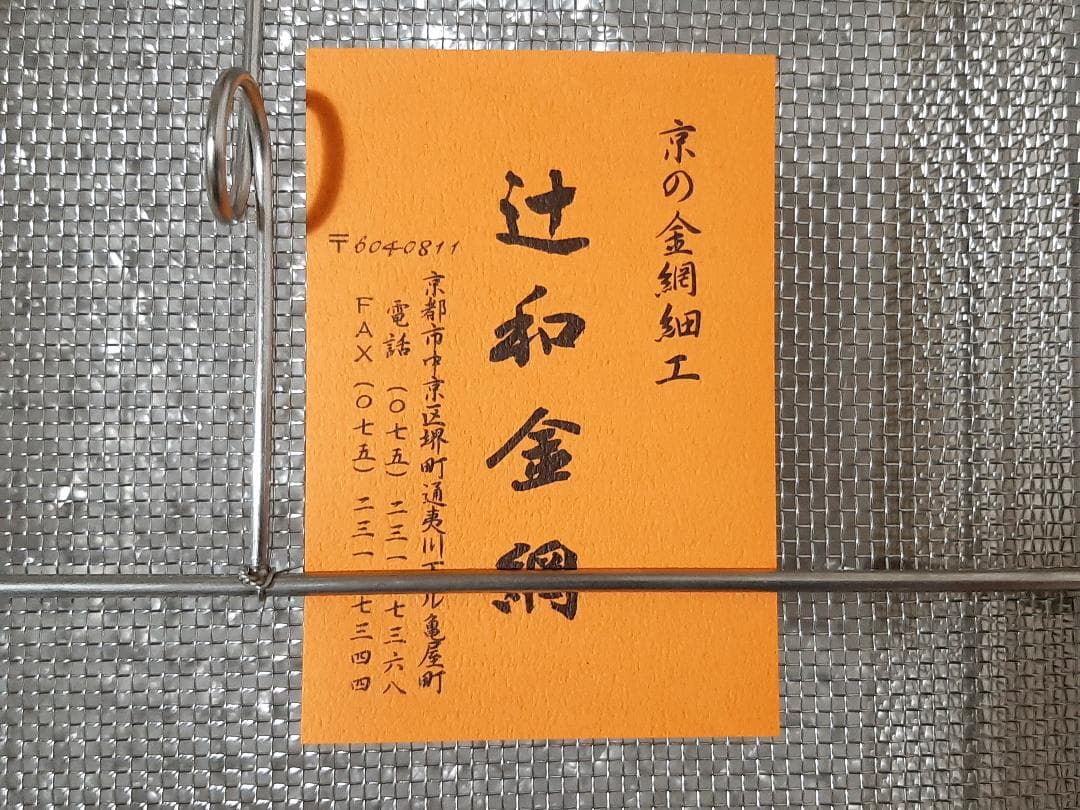 京の金網細工
辻和金網
〒604-0811
京都市中京区堺町通夷川下ル亀屋町
電話(〇七五)二三一 七三六八
FAX(〇七五)二三一 七三四四